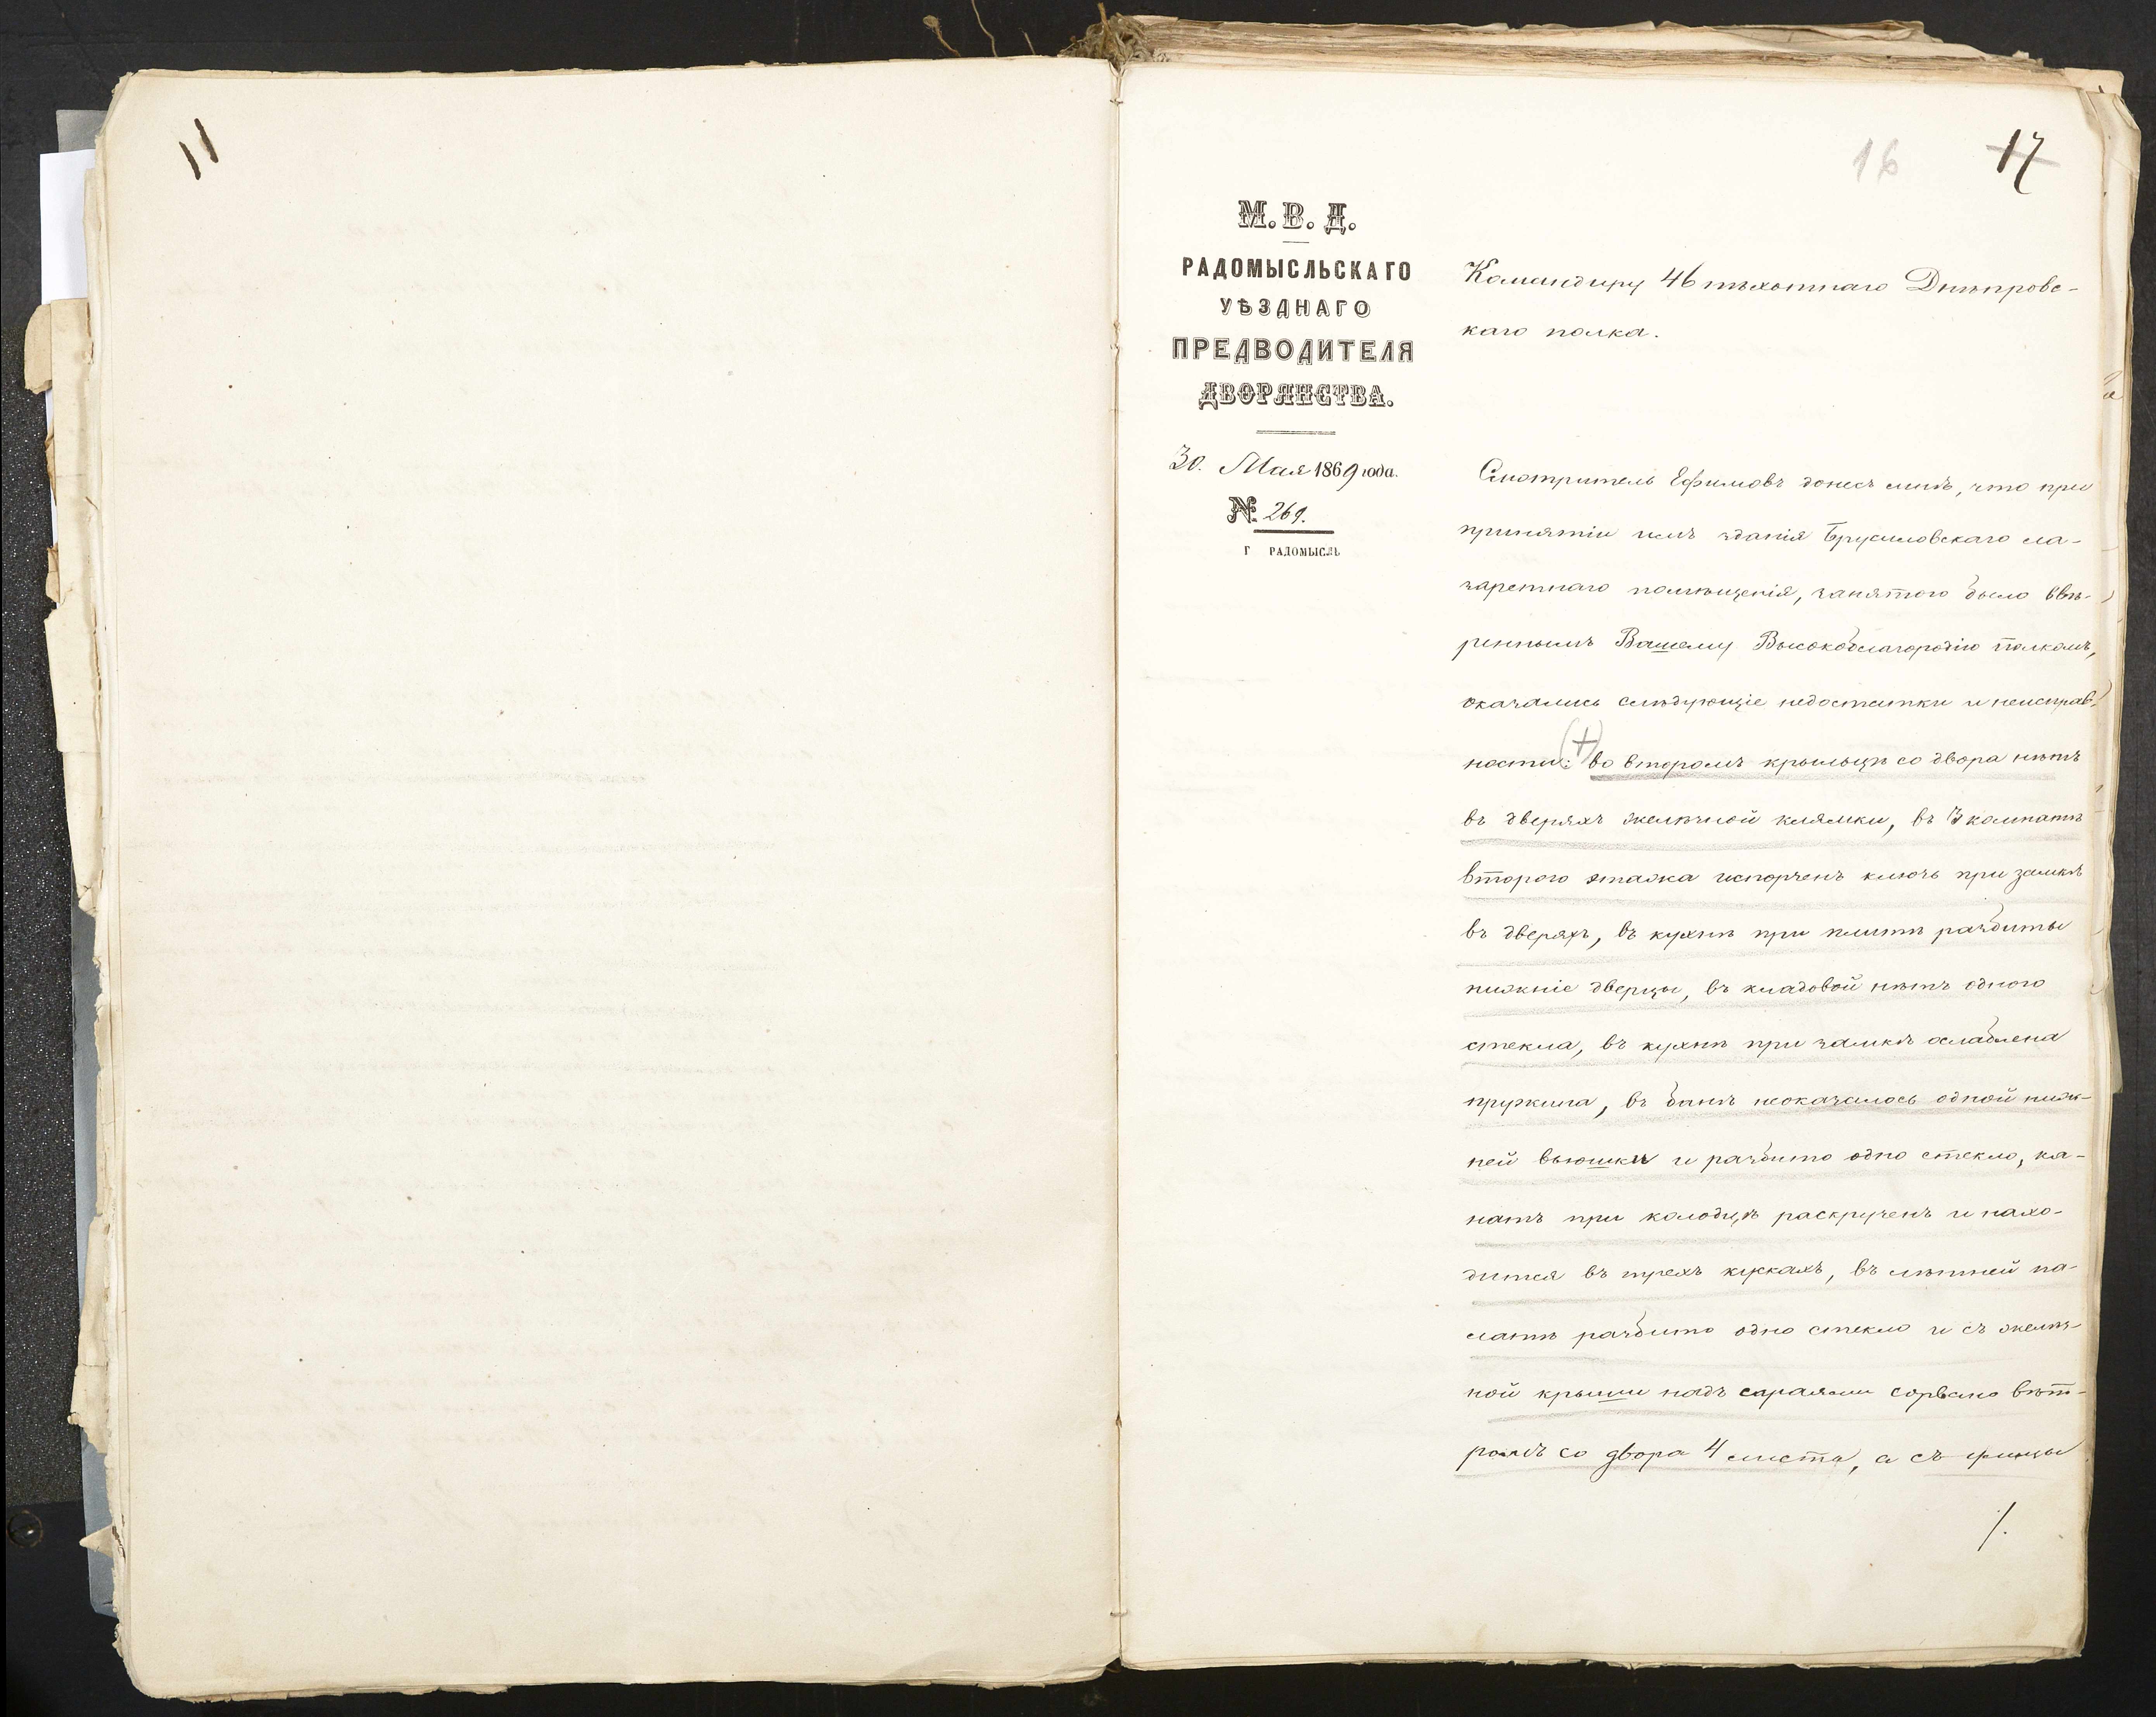 11
16 17
М. В. Д.
РАДОМЫСЛЬСКАГО
УѢЗДНАГО
ПРЕДВОДИТЕЛЯ
ДВОРЯНСТВА.
30. Мая 1869 года.
№. 269.
Г РАДОМЫСЛЬ
Командиру 46 пѣхотнаго Днѣпровс-
каго полка.
Смотритель Ефимовъ донесъ мнѣ, что при
принятіи имъ зданія Брусиловскаго ла-
заретнаго помѣщенія, занятого было ввѣ-
реннымъ Вашему Высокоблагородію полкомъ,
оказались слѣдующіе недостатки и неисправ-
ности: (+) во второмъ крыльцѣ со двора нѣтъ
въ дверяхъ желѣзной клямки, въ 3 комнатѣ
втораго этажа испорченъ ключь при замкѣ
въ дверяхъ, въ кухнѣ при плитѣ разбиты
нижніе дверцы, въ кладовой нѣтъ одного
стекла, въ кухнѣ при замкѣ ослаблена
пружина, въ банѣ неоказалось одной ниж-
ней вьюшки и разбито одно стекло, ка-
натъ при колодцѣ раскрученъ и нахо-
дится въ трехъ кускахъ, въ лѣтней па-
латѣ разбито одно стекло и съ желѣз-
ной крыши надъ сараями сорвано вѣт-
ромъ со двора 4 листа, а съ улицы
/.